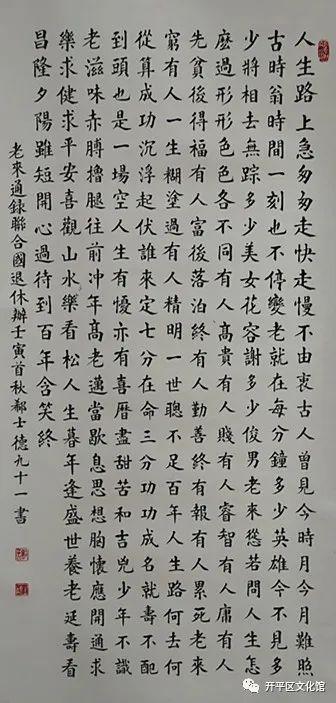 人生路上急匆匆走快走慢不由衷古人曾見今時月今月難照
古時翁時間一刻也不停變老就在每分鐘多少英雄今不見多
少將相去無踪多少美女花容謝多少俊男老來慫若問人生怎
麽過形形色色各不同有人高貴有人賤有人睿智有人庸有人
先貧後得福有人富後落泊終有人勤善終有報有人累死老來
窮有人一生糊塗過有人精明一世聰不足百年人生路何去何
從算成功沉浮起伏誰來定七分在命三分功功成名就壽不配
到頭也是一場空人生有憂亦有喜曆盡甜苦和吉兇少年不識
老滋味赤膊擼腿往前冲年高老邁當歇息思想胸懷應開通求
樂求健求平安喜觀山水樂看松人生暮年逢盛世養老延壽看
昌隆夕陽雖短開心過待到百年含笑終
老來通錄聯合國退休辦壬寅首秋鄒士德九十一書
开平区文化馆